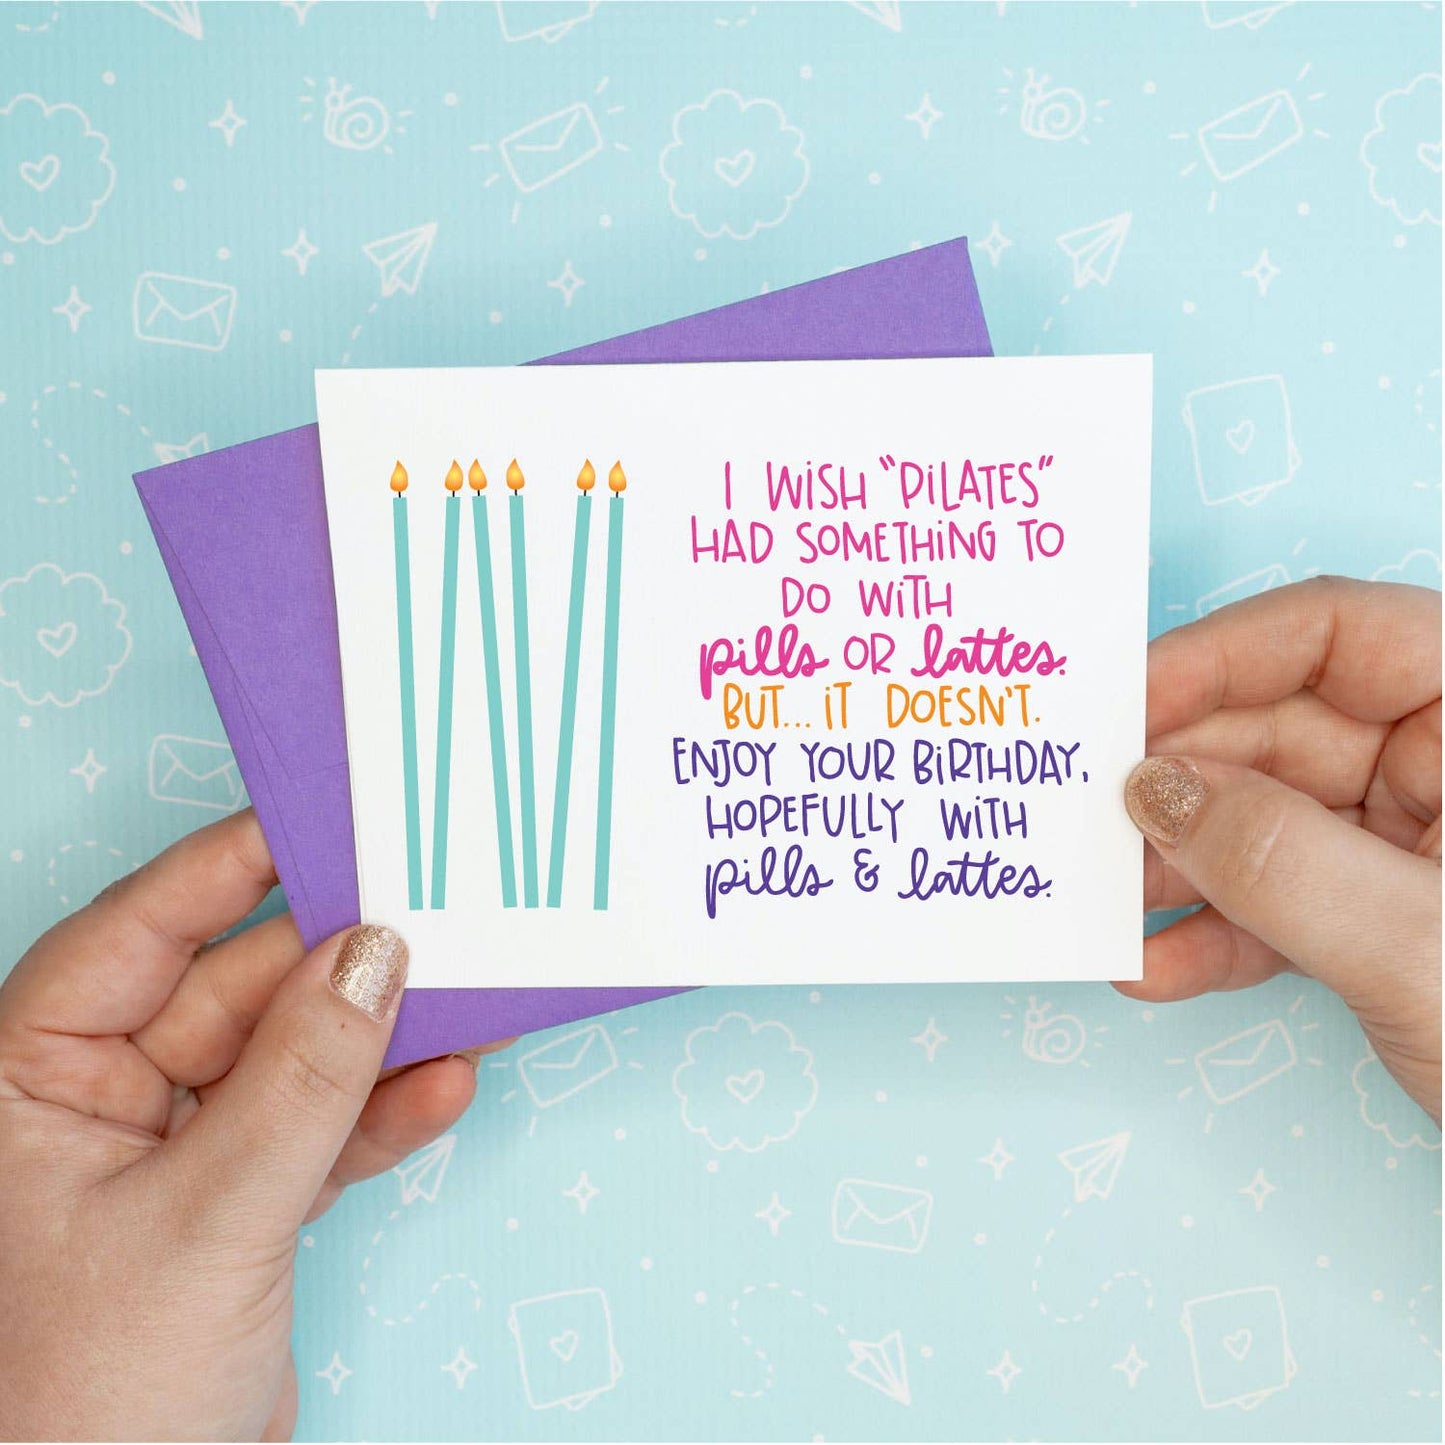 I WISH "PILATES"
HAD SOMETHING TO
DO WITH
pills OR lattes.
BUT... IT DOESN'T.
ENJOY YOUR BIRTHDAY,
HOPEFULLY WITH
pills & lattes.